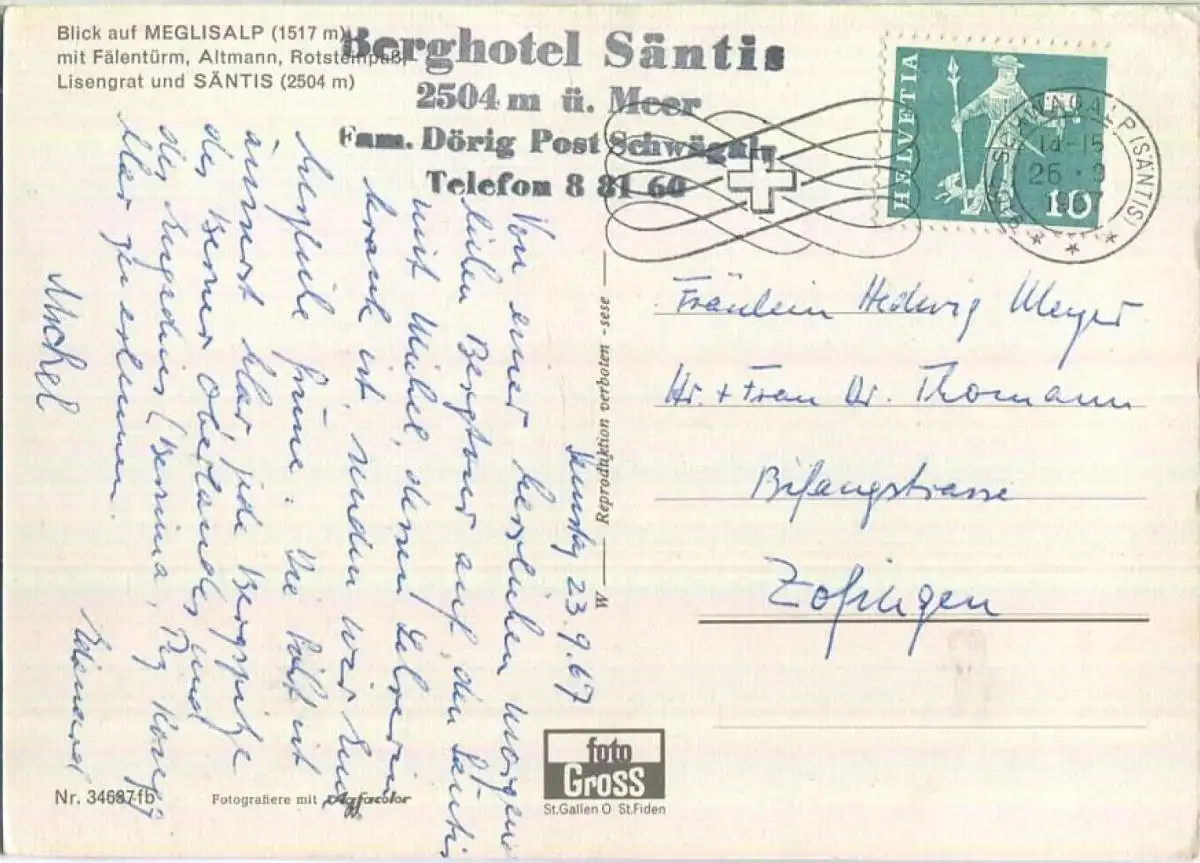 Blick auf MEGLISALP (1517 m)
mit Fälentürm, Altmann, Rotsteinpaß,
Lisengrat und SÄNTIS (2504 m)
Berghotel Säntis
2504 m ü. Meer
Fam. Dörig Post Schwägalp
Telefon 8 81 60
HELVETIA
10
SCHWÄGALP (SÄNTIS)
14-15
26
23.9.67
Von einer herrlichen Morgen
Bergtour auf den Säntis
mit Michel, dessen Lehrerin
krank ist, senden wir Euch
herzliche Grüsse. Die Luft ist
äusserst klar, jede Bergspitze
der Berner Oberländer und
der Engadiner (Bernina, Piz
klar zu erkennen.
Michel
Fräulein Hedwig Meyer
Hr. + Frau Dr. Thomann
Bifangstrasse
Zofingen
W Reproduktion verboten -sese
foto
Gross
St.Gallen O St.Fiden
Nr. 34687fb
Fotografiere mit Agfacolor